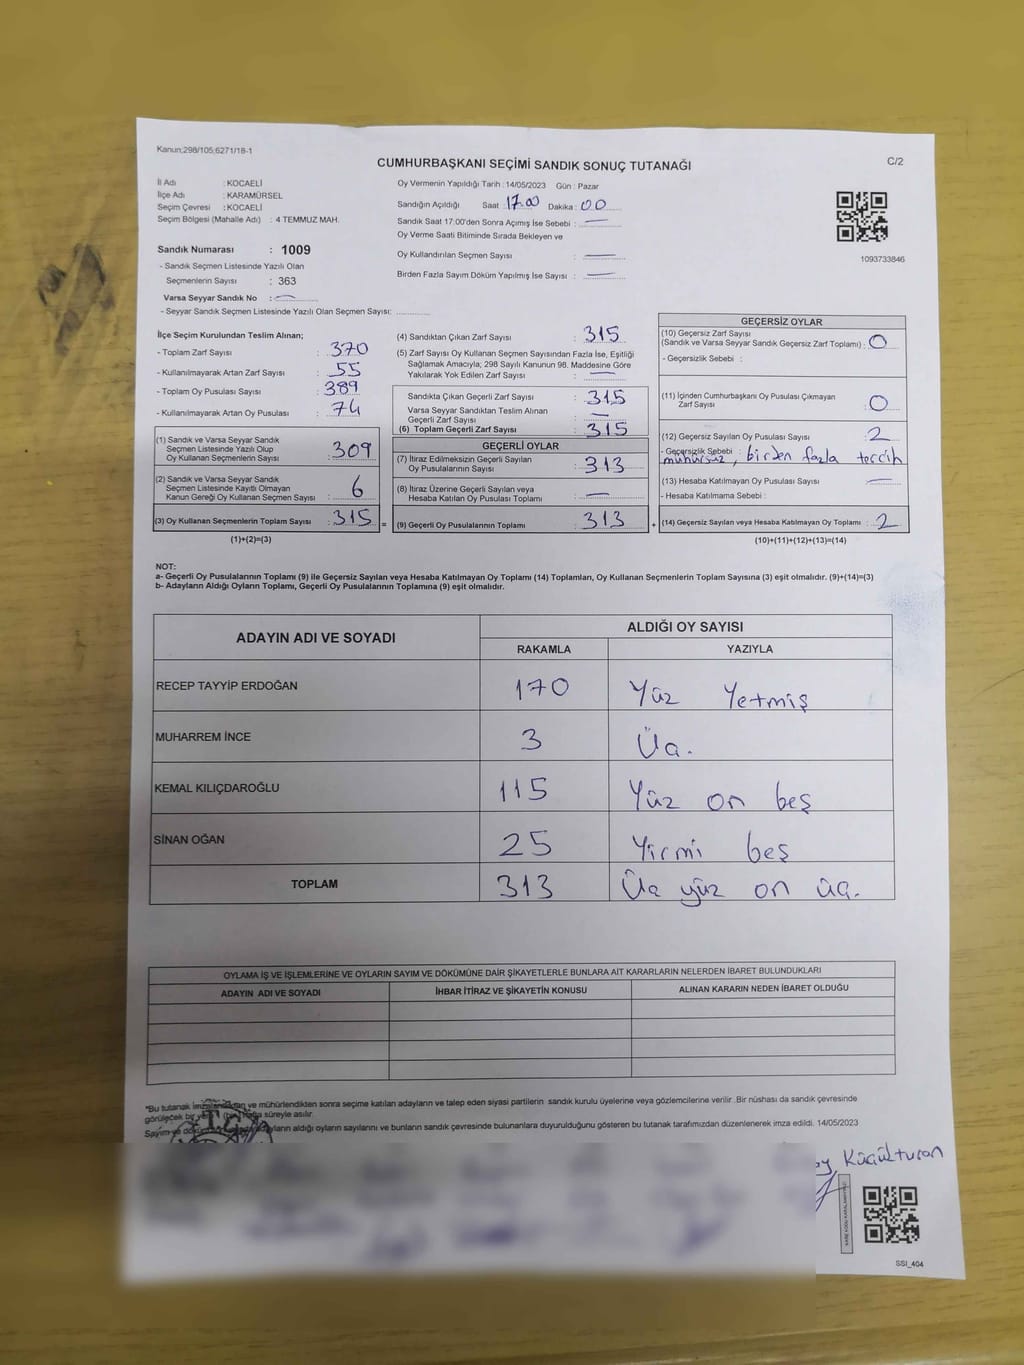 Kanun;298/105;6271/18-1
CUMHURBAŞKANI SEÇİMİ SANDIK SONUÇ TUTANAĞI
C/2
İl Adı : KOCAELİ
İlçe Adı : KARAMÜRSEL
Seçim Çevresi : KOCAELİ
Seçim Bölgesi (Mahalle Adı) : 4 TEMMUZ MAH.
Sandık Numarası : 1009
- Sandık Seçmen Listesinde Yazılı Olan
Seçmenlerin Sayısı : 363
Varsa Seyyar Sandık No : —
- Seyyar Sandık Seçmen Listesinde Yazılı Olan Seçmen Sayısı:
Oy Vermenin Yapıldığı Tarih :14/05/2023 Gün : Pazar
Sandığın Açıldığı Saat 17.00 Dakika: 00
Sandık Saat 17:00'den Sonra Açımış İse Sebebi : —
Oy Verme Saati Bitiminde Sırada Bekleyen ve
Oy Kullandırılan Seçmen Sayısı : —
Birden Fazla Sayım Döküm Yapılmış İse Sayısı : —
1093733846
İlçe Seçim Kurulundan Teslim Alınan;
- Toplam Zarf Sayısı : 370
- Kullanılmayarak Artan Zarf Sayısı : 55
- Toplam Oy Pusulası Sayısı : 389
- Kullanılmayarak Artan Oy Pusulası : 74
(1) Sandık ve Varsa Seyyar Sandık
Seçmen Listesinde Yazılı Olup
Oy Kullanan Seçmenlerin Sayısı : 309
(2) Sandık ve Varsa Seyyar Sandık
Seçmen Listesinde Kayıtlı Olmayan
Kanun Gereği Oy Kullanan Seçmen Sayısı : 6
(3) Oy Kullanan Seçmenlerin Toplam Sayısı : 315 =
(1)+(2)=(3)
(4) Sandıktan Çıkan Zarf Sayısı : 315
(5) Zarf Sayısı Oy Kullanan Seçmen Sayısından Fazla İse, Eşitliği
Sağlamak Amacıyla; 298 Sayılı Kanunun 98. Maddesine Göre
Yakılarak Yok Edilen Zarf Sayısı : —
Sandıkta Çıkan Geçerli Zarf Sayısı : 315
Varsa Seyyar Sandıktan Teslim Alınan
Geçerli Zarf Sayısı : —
(6) Toplam Geçerli Zarf Sayısı : 315
GEÇERLİ OYLAR
(7) İtiraz Edilmeksizin Geçerli Sayılan
Oy Pusulalarının Sayısı : 313
(8) İtiraz Üzerine Geçerli Sayılan veya
Hesaba Katılan Oy Pusulası Toplamı : —
(9) Geçerli Oy Pusulalarının Toplamı : 313 +
GEÇERSİZ OYLAR
(10) Geçersiz Zarf Sayısı
(Sandık ve Varsa Seyyar Sandık Geçersiz Zarf Toplamı) : 0
- Geçersizlik Sebebi :
(11) İçinden Cumhurbaşkanı Oy Pusulası Çıkmayan
Zarf Sayısı : 0
(12) Geçersiz Sayılan Oy Pusulası Sayısı : 2
- Geçersizlik Sebebi :
mühürsüz, birden fazla tercih
(13) Hesaba Katılmayan Oy Pusulası Sayısı : —
- Hesaba Katılmama Sebebi :
(14) Geçersiz Sayılan veya Hesaba Katılmayan Oy Toplamı : 2
(10)+(11)+(12)+(13)=(14)
NOT:
a- Geçerli Oy Pusulalarının Toplamı (9) ile Geçersiz Sayılan veya Hesaba Katılmayan Oy Toplamı (14) Toplamları, Oy Kullanan Seçmenlerin Toplam Sayısına (3) eşit olmalıdır. (9)+(14)=(3)
b- Adayların Aldığı Oyların Toplamı, Geçerli Oy Pusulalarının Toplamına (9) eşit olmalıdır.
ADAYIN ADI VE SOYADI
ALDIĞI OY SAYISI
RAKAMLA YAZIYLA
RECEP TAYYİP ERDOĞAN 170 Yüz Yetmiş
MUHARREM İNCE 3 Üç.
KEMAL KILIÇDAROĞLU 115 Yüz on beş
SİNAN OĞAN 25 Yirmi beş
TOPLAM 313 Üç yüz on üç.
OYLAMA İŞ VE İŞLEMLERİNE VE OYLARIN SAYIM VE DÖKÜMÜNE DAİR ŞİKAYETLERLE BUNLARA AİT KARARLARIN NELERDEN İBARET BULUNDUKLARI
ADAYIN ADI VE SOYADI İHBAR İTİRAZ VE ŞİKAYETİN KONUSU ALINAN KARARIN NEDEN İBARET OLDUĞU
"Bu tutanak ve mühürlendikten sonra seçime katılan adayların ve talep eden siyasi partilerin sandık kurulu üyelerine veya gözlemcilerine verilir. Bir nüshası da sandık çevresinde
görülecek bir süreyle asılır.
Sayım adayların aldığı oyların sayılarını ve bunların sandık çevresinde bulunanlara duyurulduğunu gösteren bu tutanak tarafımızdan düzenlenerek imza edildi. 14/05/2023
Küçükturan
SSI_404